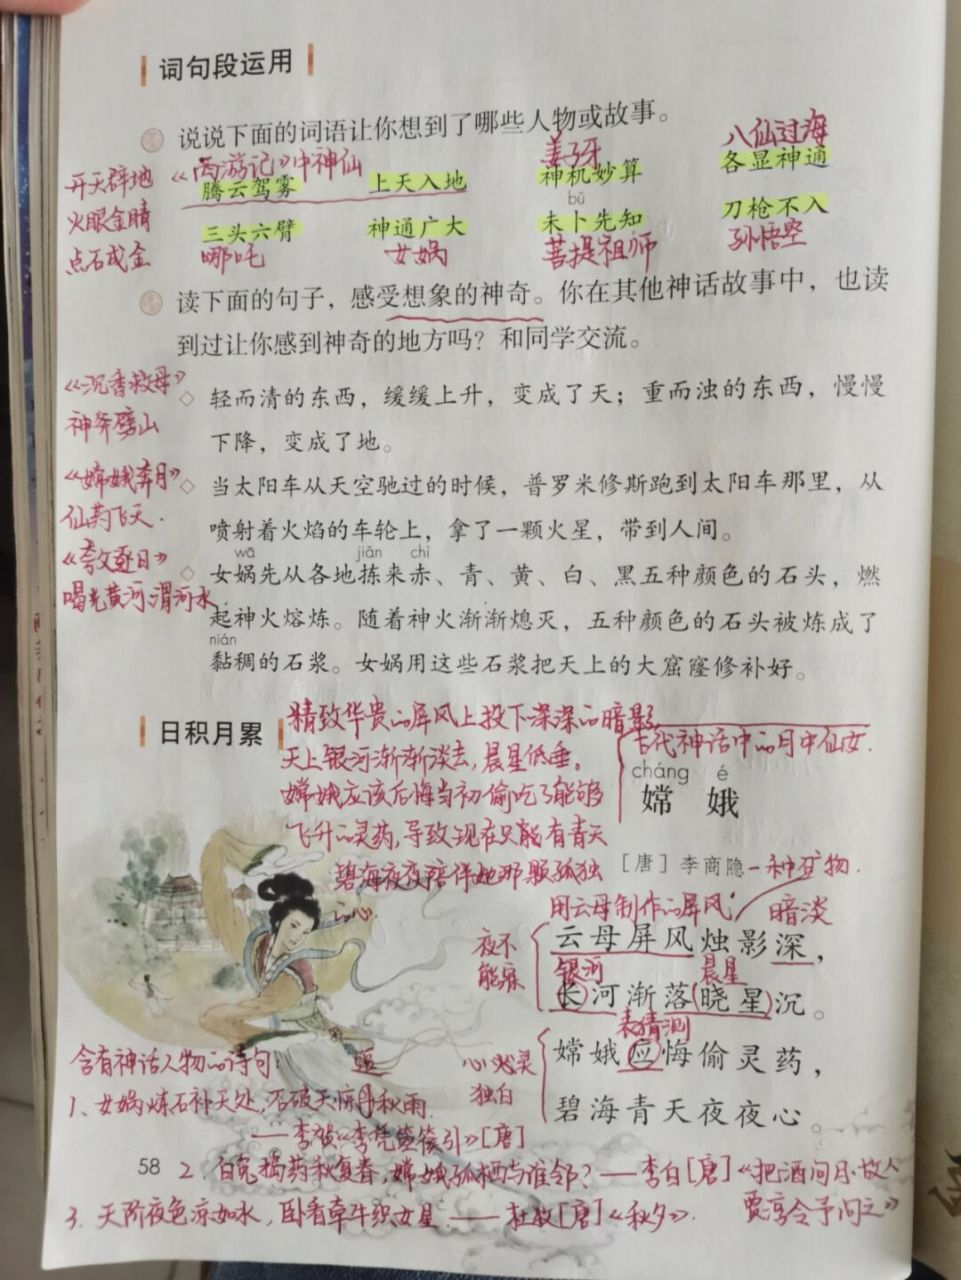 词句段运用
说说下面的词语让你想到了哪些人物或故事。
八仙过海
《西游记》中神仙
姜子牙
开天辟地
腾云驾雾 上天入地 神机妙算 各显神通
火眼金睛
bǔ
三头六臂 神通广大 未卜先知 刀枪不入
点石成金
哪吒 女娲 菩提祖师 孙悟空
读下面的句子，感受想象的神奇。你在其他神话故事中，也读
到过让你感到神奇的地方吗？和同学交流。
《沉香救母》
神斧劈山
轻而清的东西，缓缓上升，变成了天；重而浊的东西，慢慢
下降，变成了地。
《嫦娥奔月》
仙药飞天.
当太阳车从天空驰过的时候，普罗米修斯跑到太阳车那里，从
喷射着火焰的车轮上，拿了一颗火星，带到人间。
《夸父逐日》
喝光黄河、渭河水.
wā jiǎn chì
女娲先从各地拣来赤、青、黄、白、黑五种颜色的石头，燃
起神火熔炼。随着神火渐渐熄灭，五种颜色的石头被炼成了
nián
黏稠的石浆。女娲用这些石浆把天上的大窟窿修补好。
日积月累
精致华贵的屏风上投下深深的暗影,
天上银河渐渐淡去,晨星低垂。
嫦娥应该后悔当初偷吃了能够
飞升的灵药,导致现在只能有青天
碧海夜夜陪伴她那颗孤独
的心.
古代神话中的月中仙女.
cháng é
嫦娥
［唐］李商隐
一种矿物.
用云母制作的屏风.
暗淡
夜不
能寐
云母屏风烛影深，
银河 晨星
长河渐落晓星沉。
表猜测
心灵
独白
嫦娥应悔偷灵药，
碧海青天夜夜心。
含有神话人物的诗句:
逗
1、女娲炼石补天处,石破天惊秋雨.
——李贺《李凭箜篌引》[唐]
58
2. 白兔捣药秋复春,嫦娥孤栖与谁邻?——李白[唐]《把酒问月·故人
贾淳令予问之》
3. 天阶夜色凉如水,卧看牵牛织女星.——杜牧[唐]《秋夕》.